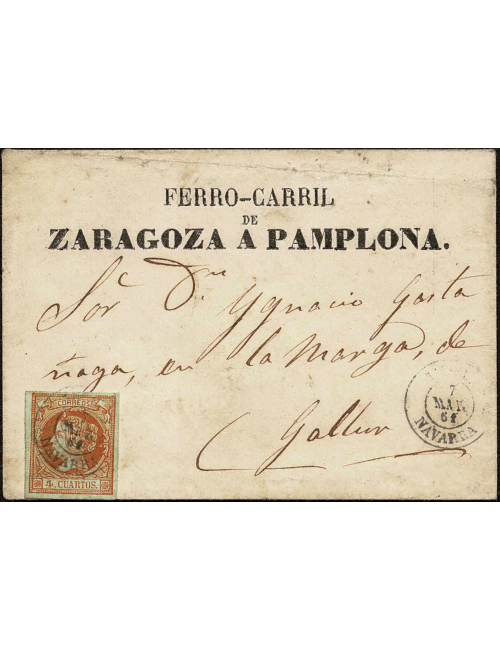 FERRO-CARRIL
DE
ZARAGOZA A PAMPLONA.
Sor. Dn. Ygnacio Gasta
ñaga, en la Marga, de
Gallur
7
MAR
61
NAVARRA
CORREOS
4 CUARTOS.